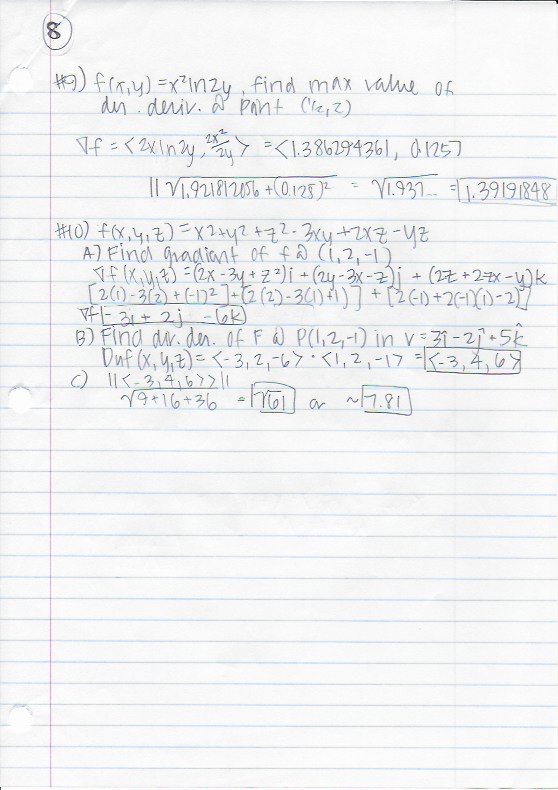 8
#9) f(x,y) = x²ln2y, find max value of
der. deriv. @ point (1/2, 2)
∇f = <2xln2y, 2x²/2y> = <1.386294361, 0.125>
||√1.921812056 + (0.125)² = √1.937... = 1.39191848
#10) f(x,y,z) = x2+y2+z2-3xy+2xz-yz
A) Find gradiant of f @ (1,2,-1)
∇f(x,y,z) = (2x-3y+z²)i + (2y-3x-z)j + (2z+2zx-y)k
[2(1)-3(2)+(-1)²]+[2(2)-3(1)+1)] + [2(-1)+2(-1)(1)-2)]
∇f[-3i + 2j -6k]
B) Find dir. der. of F @ P(1,2,-1) in v=3î-2ĵ+5k̂
Duf(x,y,z) = <-3,2,-6> · <1,2,-1> = <-3,4,6>
C) ||<-3,4,6>>||
√9+16+36 = √61 or ~7.81